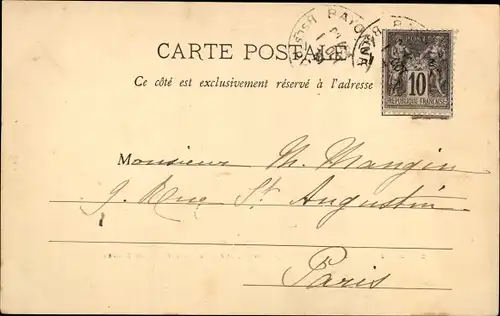 BAYONNE
CARTE POSTALE
10
REPUBLIQUE FRANÇAISE
Ce côté est exclusivement réservé à l'adresse
Monsieur M. Mangin
9. Rue St Augustin
Paris